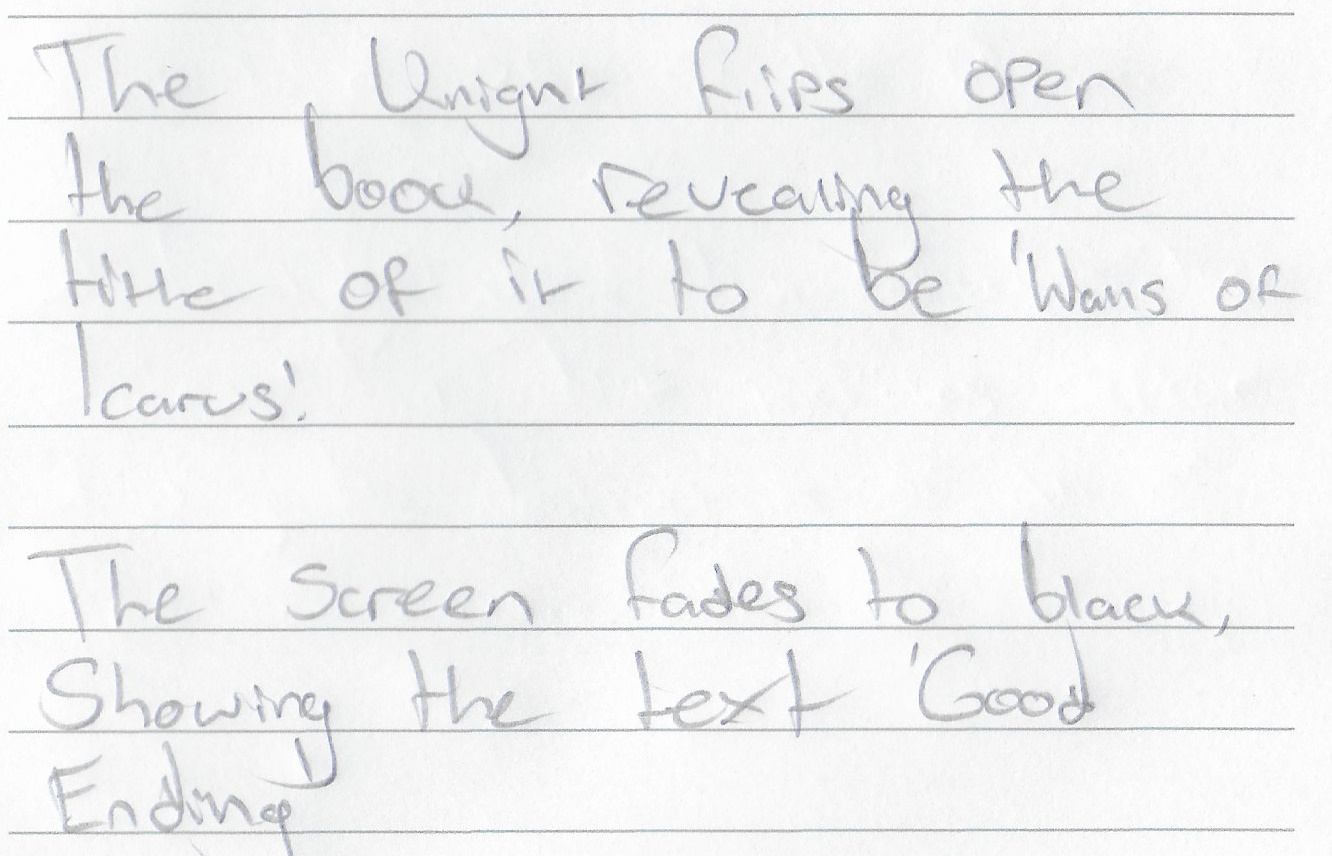 The Knight flips open
the book, revealing the
title of it to be 'Walls of
Icarus'.
The Screen fades to black,
Showing the text 'Good
Ending